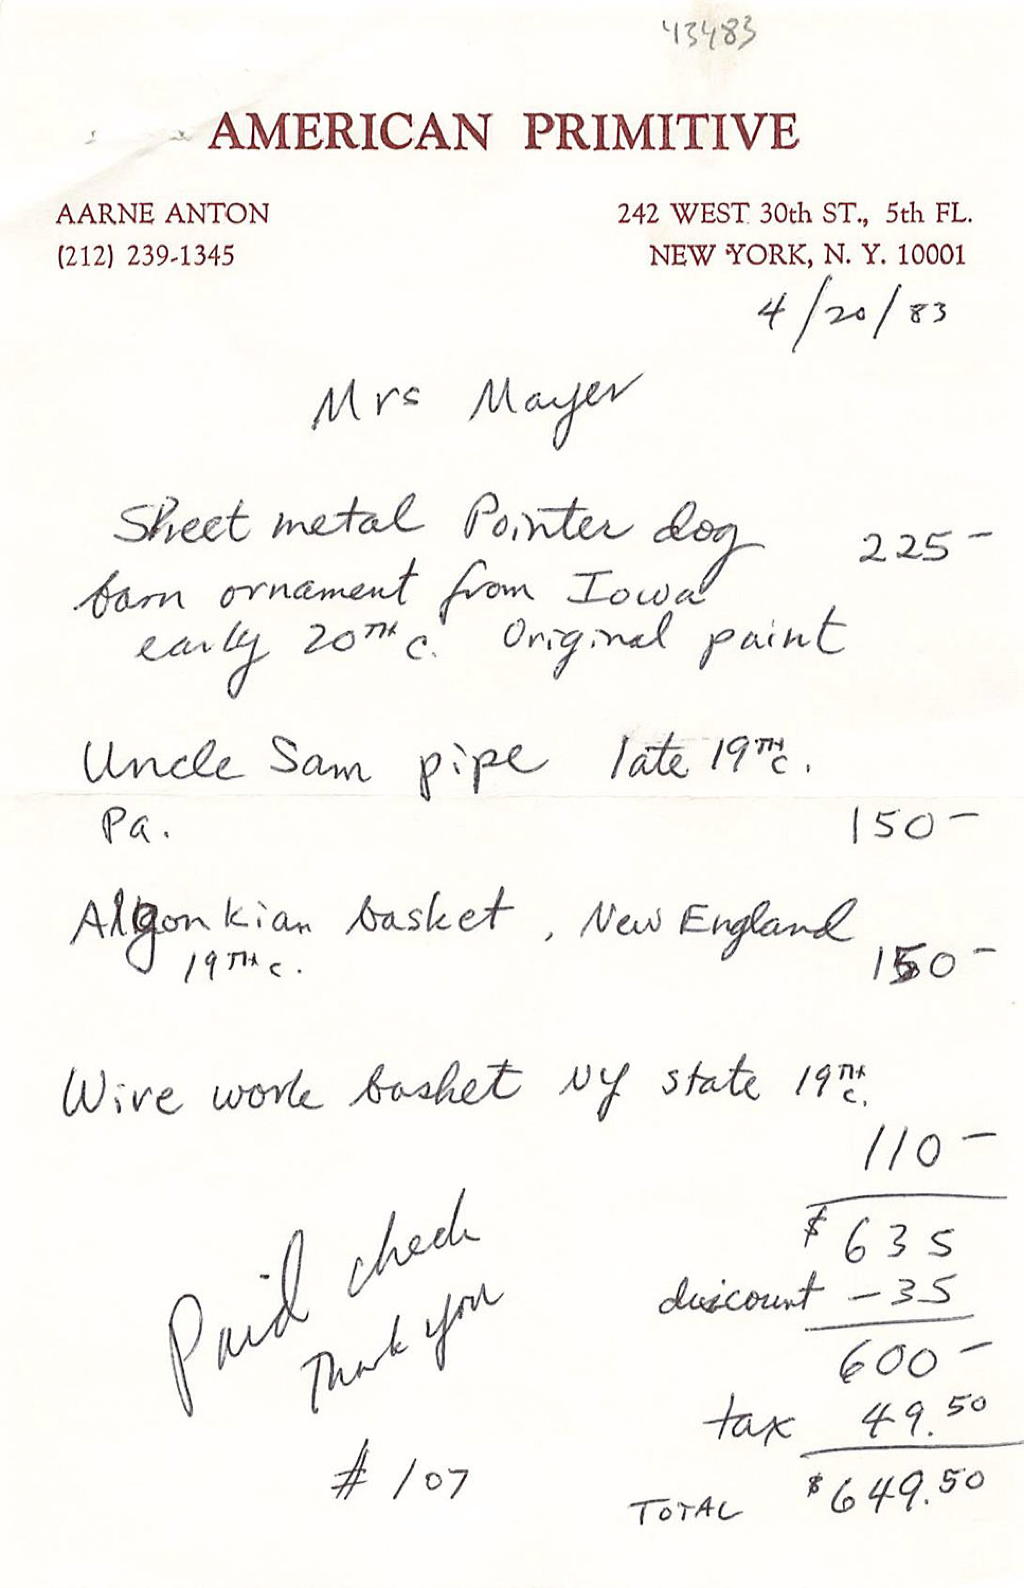 43483
AMERICAN PRIMITIVE
AARNE ANTON
(212) 239-1345
242 WEST 30th ST., 5th FL.
NEW YORK, N. Y. 10001
4/20/83
Mrs Mayer
Sheet metal Pointer dog 225-
barn ornament from Iowa
early 20TH c. Original paint
Uncle Sam pipe late 19TH c.
Pa. 150-
Algonkian basket, New England
19TH c. 150-
Wire work basket NY state 19TH c.
110-
$635
discount -35
600-
tax 49.50
TOTAL $649.50
Paid check
Thank you
# 107